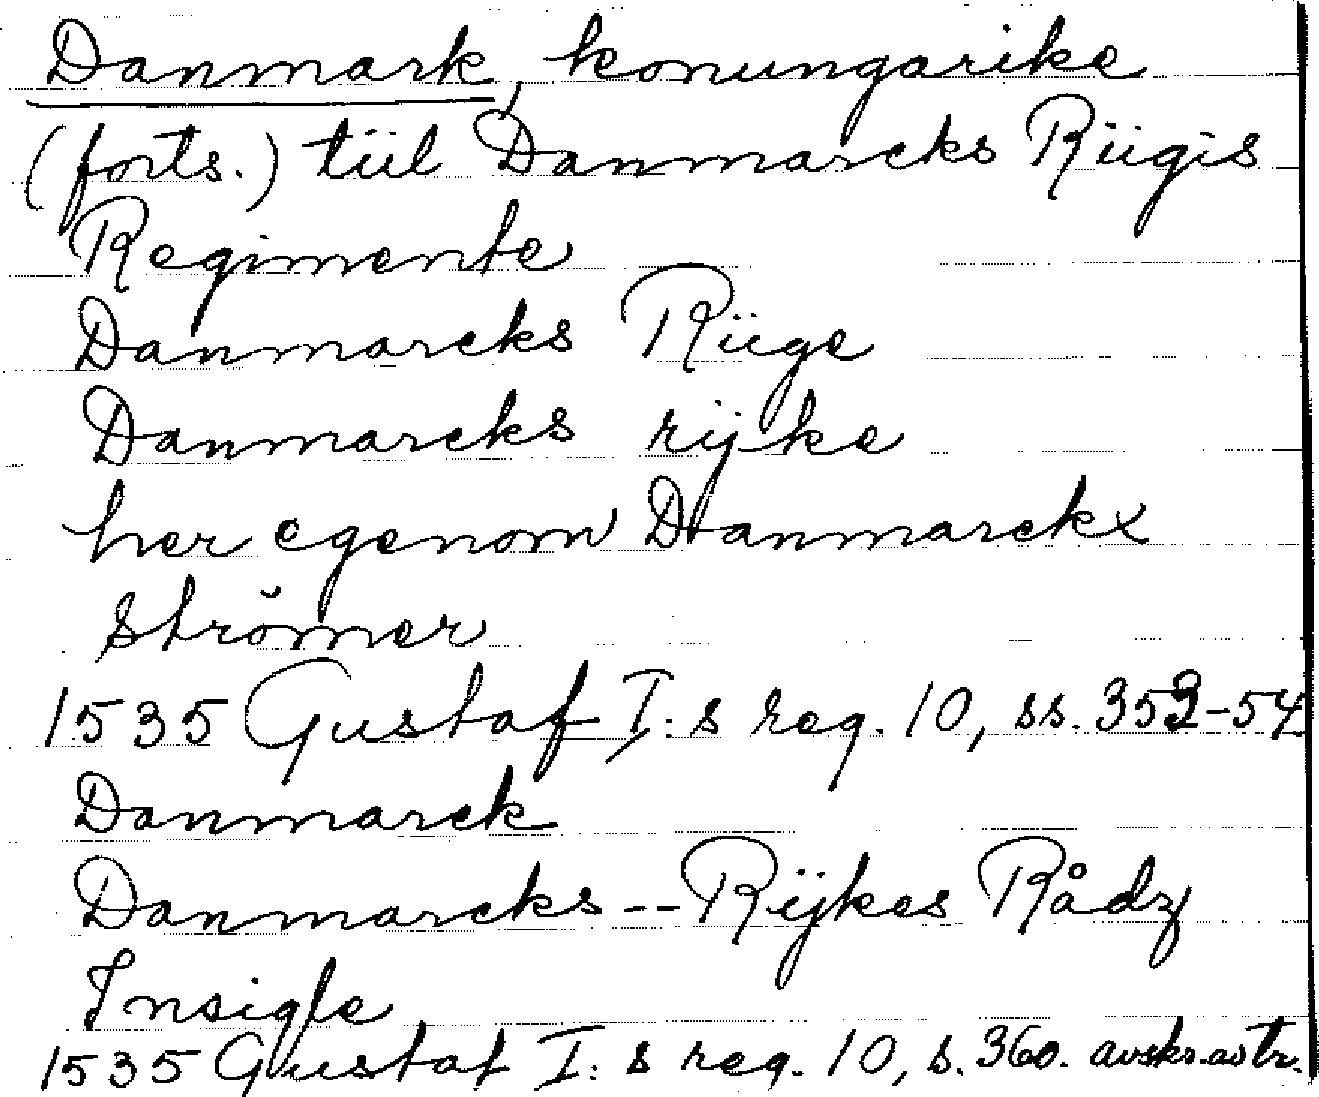 Danmark, konungarike
(forts.) tiil Danmarcks Riigis
Regimente
Danmarcks Riige
Danmarcks rijke
her egenom Danmarckx
strömer
1535 Gustaf I:s reg. 10, ss. 353-54
Danmarck
Danmarcks -- Rijkes Rådz
Insigle
1535 Gustaf I:s reg. 10, s. 360. avskr. av tr.